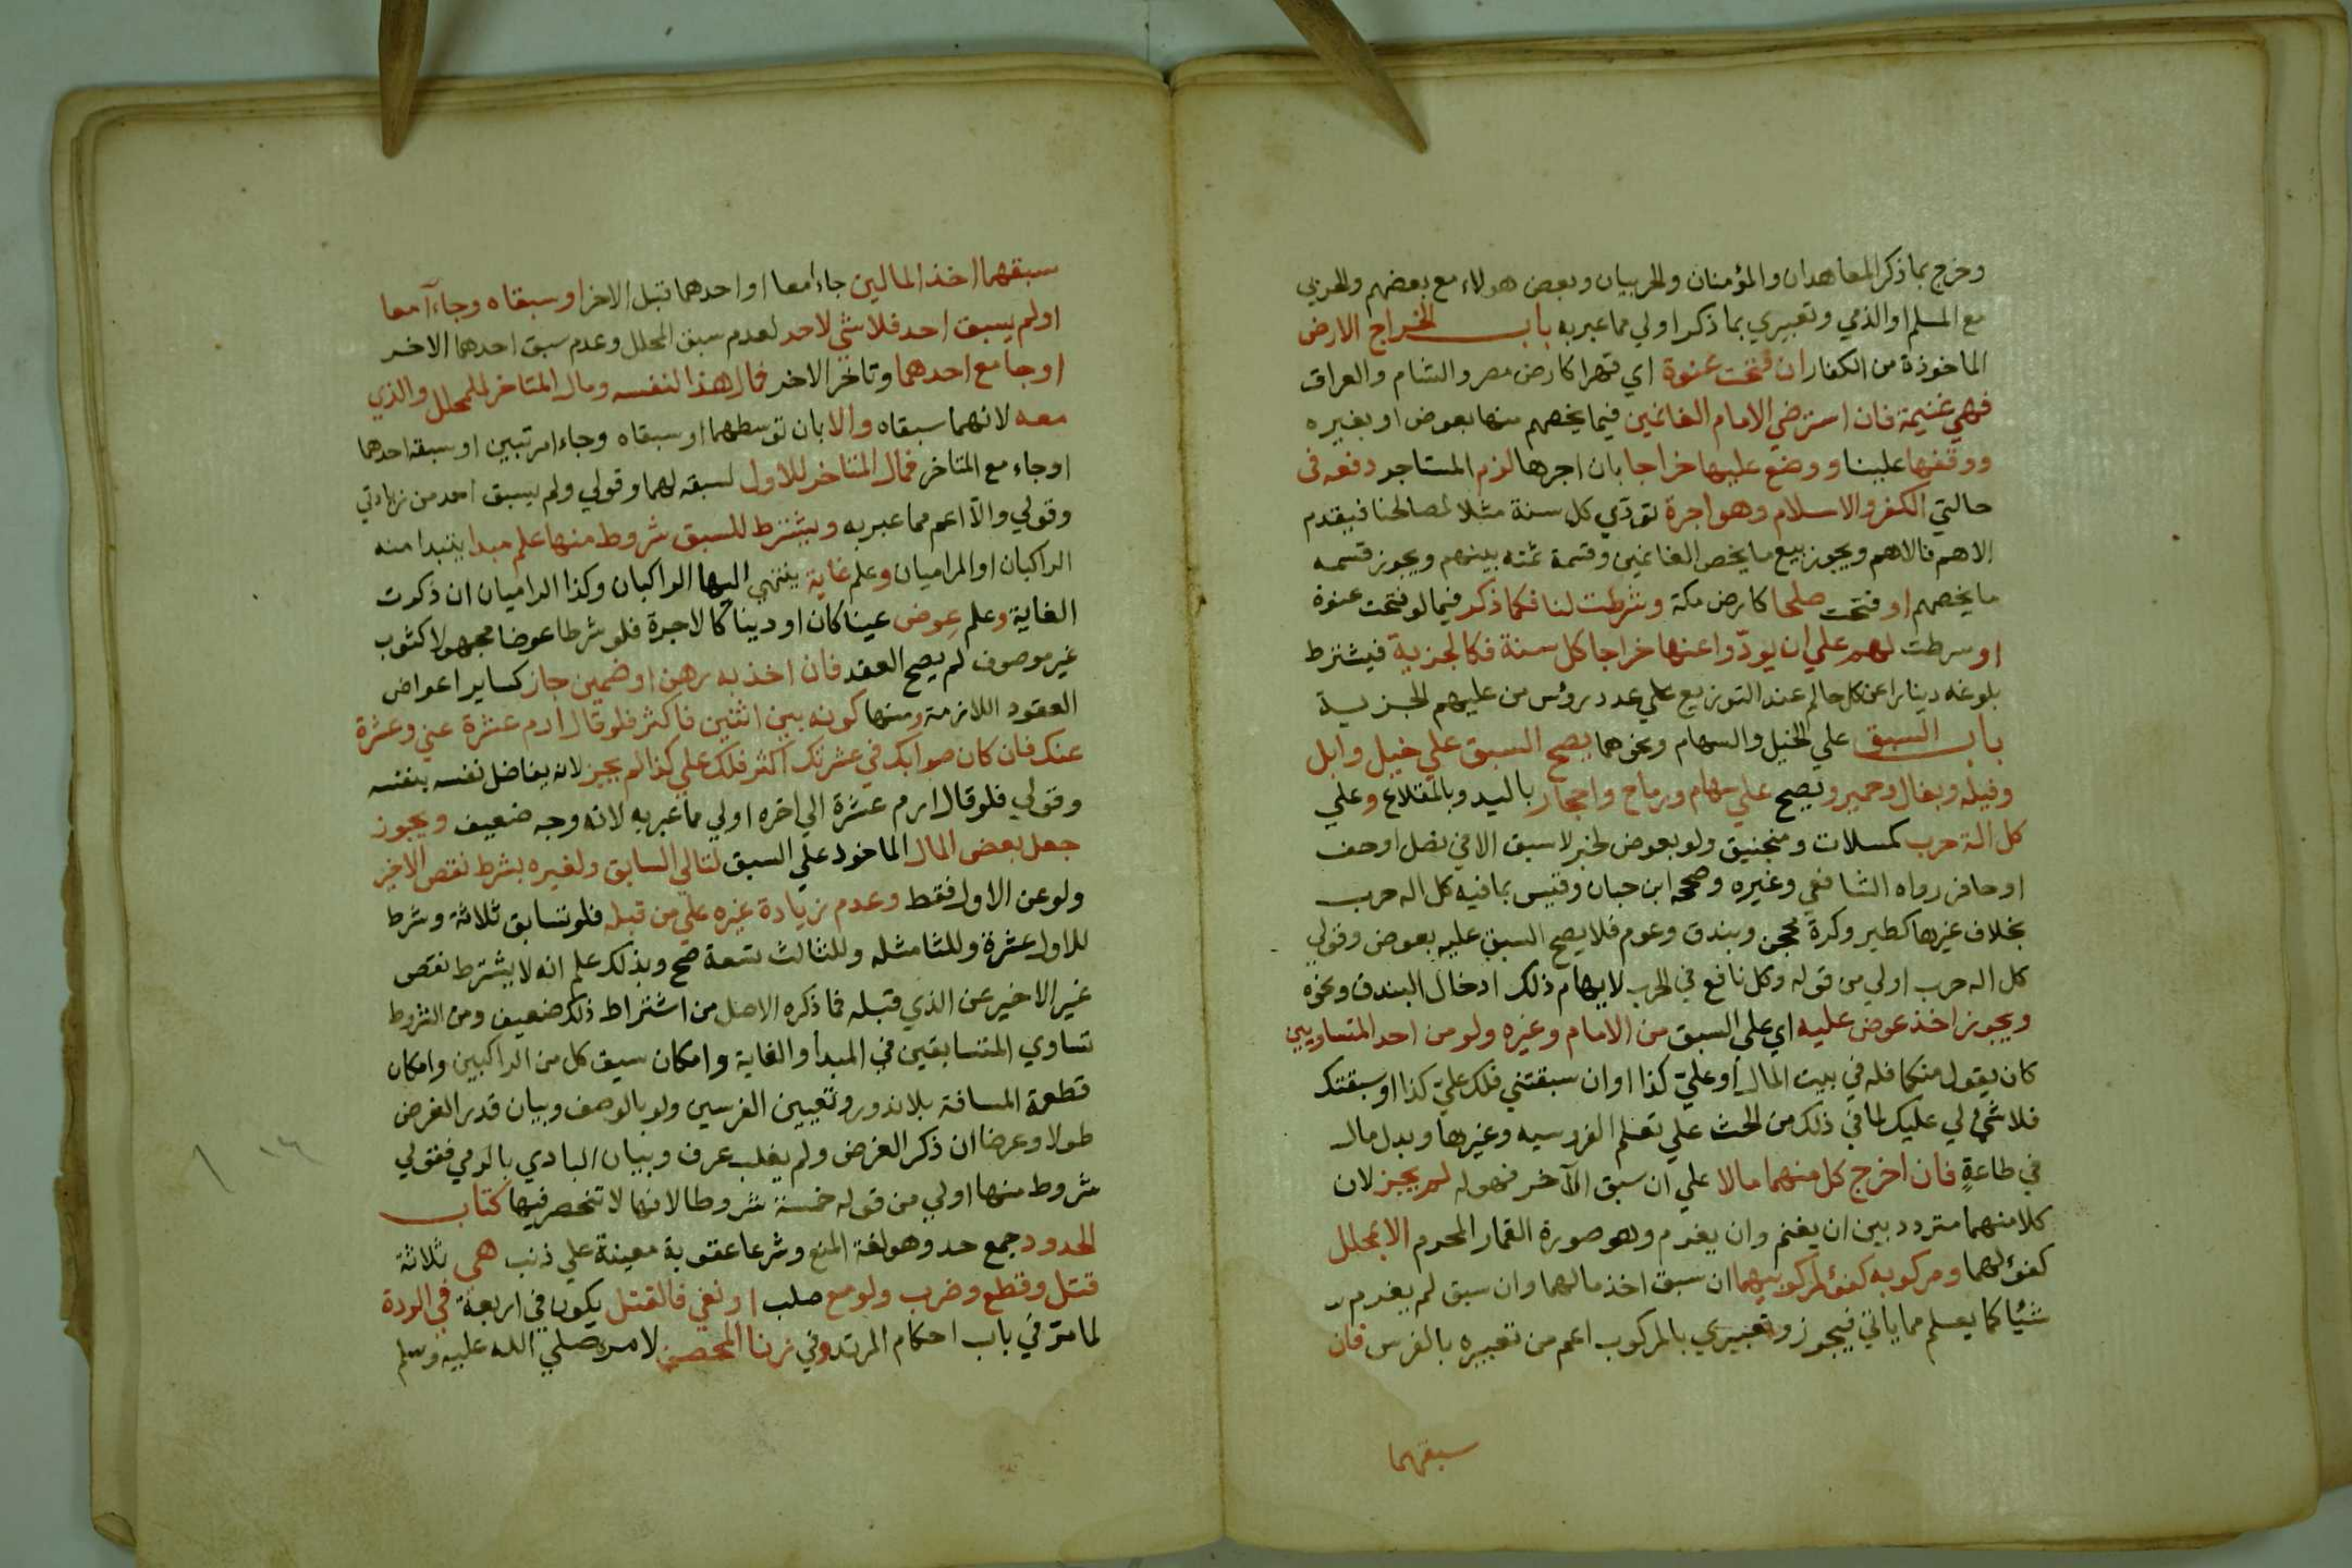 وخرج بما ذكر المعاهدان والمؤمنان والحربيان وبعض هولاء مع بعضهم والحربي
مع المسلم او الذمي وتعبيري بما ذكر اولي مما عبر به باب الخراج الارض
الماخوذة من الكفار ان فتحت عنوة اي قهرا كارض مصر والشام والعراق
فهي غنيمة فان استرضي الامام الغانمين فيما يخصهم منها بعوض او بغيره
ووقفها علينا ووضع عليها خراجا بان اجرها لزم المستاجر دفعه في
حالتي الكفر والاسلام وهو اجرة تودّي كل سنة مثلا لمصالحنا فيقدم
الاهم فالاهم ويجوز بيع ما يخص الغانمين وقسمة ثمنه بينهم ويجوز قسمه
ما يخصهم او فتحت صلحا كارض مكة وشرطت لنا فكما ذكر فيما لو فتحت عنوة
او سرطت لهم علي ان يودّوا عنها خراجا كل سنة فكالجزية فيشترط
بلوغه دينارا عن كل حالم عند التوزيع علي عدد رؤس من عليهم الجزية
باب السبق علي الخيل والسهام ونحوهما يصح السبق علي خيل وابل
وفيله وبغال وحمير ويصح علي سهام ورماح واحجار باليد وبالمقلاع وعلي
كل الة حرب كمسلات ومنجنيق ولو بعوض لخبر لا سبق الا في نصل اوحف
او حافر رواه الشافعي وغيره وصححه ابن حبان وقيس بما فيه كل اله حرب
بخلاف غيرها كطير وكرة محجن وبندق وعوم فلا يصح السبق عليه بعوض وقولي
كل اله حرب اولي من قوله وكل نافع في الحرب لايهام ذلك ادخال البندق ونحوه
ويجوز اخذ عوض عليه اي علي السبق من الامام وغيره ولو من احد المتساويين
كان يقول منكما فله في بيت المال أو عليّ كذا او ان سبقتني فلك عليّ كذا او سبقتك
فلا شي لي عليك لما في ذلك من الحث علي تعلم الفروسيه وغيرها وبدل مال
في طاعةٍ فان اخرج كل منهما مالا علي ان سبق الآخر فهو له لم يجز لان
كلا منهما متردد بين ان يغنم وان يغرم وهو صورة القمار المحرم الا بمحلل
كفؤ لهما ومركوبه كفؤ لمركوبيهما ان سبق اخذ مالهما وان سبق لم يغرم
شيًا كما يعلم مما ياتي فيجوز وتعبيري بالمركوب اعم من تعبيره بالفرس فان
سبقهما
سبقهما اخذ المالين جاءا معا او احدهما قبل الاخر او سبقاه وجاءآ معا
او لم يسبق احد فلا شي لاحد لعدم سبق المحلل وعدم سبق احدهما الاخر
او جا مع احدهما وتاخر الاخر فمال هذا لنفسه ومال المتاخر للمحلل والذي
معه لانهما سبقاه والا بان توسطهما او سبقاه وجاءا مرتبين او سبقه احدهما
او جاء مع المتاخر فمال المتاخر للاول لسبقه لهما وقولي ولم يسبق احد من زيادتي
وقولي والا اعم مما عبر به ويشترط للسبق شروط منها علم مبدا يبتدا منه
الراكبان او المراميان وعلم غاية ينتهي اليها الراكبان وكذا الراميان ان ذكرت
الغاية وعلم عوض عينا كان او دينا كالاجرة فلو شرطا عوضا مجهولا كثوب
غير موصوف لم يصح العقد فان اخذ به رهن او ضمين جاز كساير اعواض
العقود اللازمة ومنها كونه بين اثنين فاكثر فلو قال ارم عشرة عني وعشرة
عنك فان كان صوابك في عشرتك اكثر فلك علي كذا لم يجز لانه يفاضل نفسه بنفسه
وقولي فلو قال ارم عشرة الي اخره اولي مما عبر به لانه وجه ضعيف ويجوز
جعل بعض المال الماخود علي السبق لتالي السابق ولغيره بشرط نقص الاخير
ولو عن الاول فقط وعدم زيادة غيره علي من قبله فلو تسابق ثلاثة وشرط
للاول عشرة وللثا مثله وللثالث تسعة صح وبذلك علم انه لا يشترط نقص
غير الاخير عن الذي قبله فما ذكره الاصل من اشتراط ذلك ضعيف ومن الشروط
تساوي المتسابقين في المبدأ والغاية وامكان سبق كل من الراكبين وامكان
قطعة المسافة بلا ندور وتعيين الفرسين ولو بالوصف وبيان قدر الغرض
طولا وعرضا ان ذكر الغرض ولم يغلب عرف وبيان البادي بالرمي فقولي
شروط منها اولي من قوله خمسة شروط لانها لا تنحصر فيها كتاب
الحدود جمع حد وهو لغة المنع وشرعا عقوبة معينة علي ذنب هي ثلاثة
قتل وقطع وضرب ولو مع صلب او نفي فالقتل يكون في اربعة في الردة
لما مرّ في باب احكام المرتد وفي زنا المحصن لامره صلي الله عليه وسلم